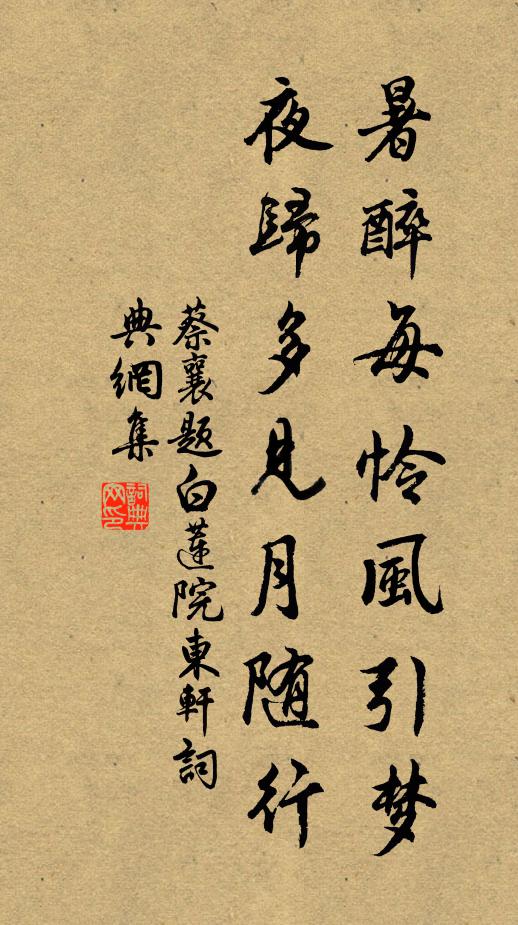 暑醉每怜風引梦
夜歸多見月随行
蔡襄題白蓮院東軒詞
典網集
詞典
网印